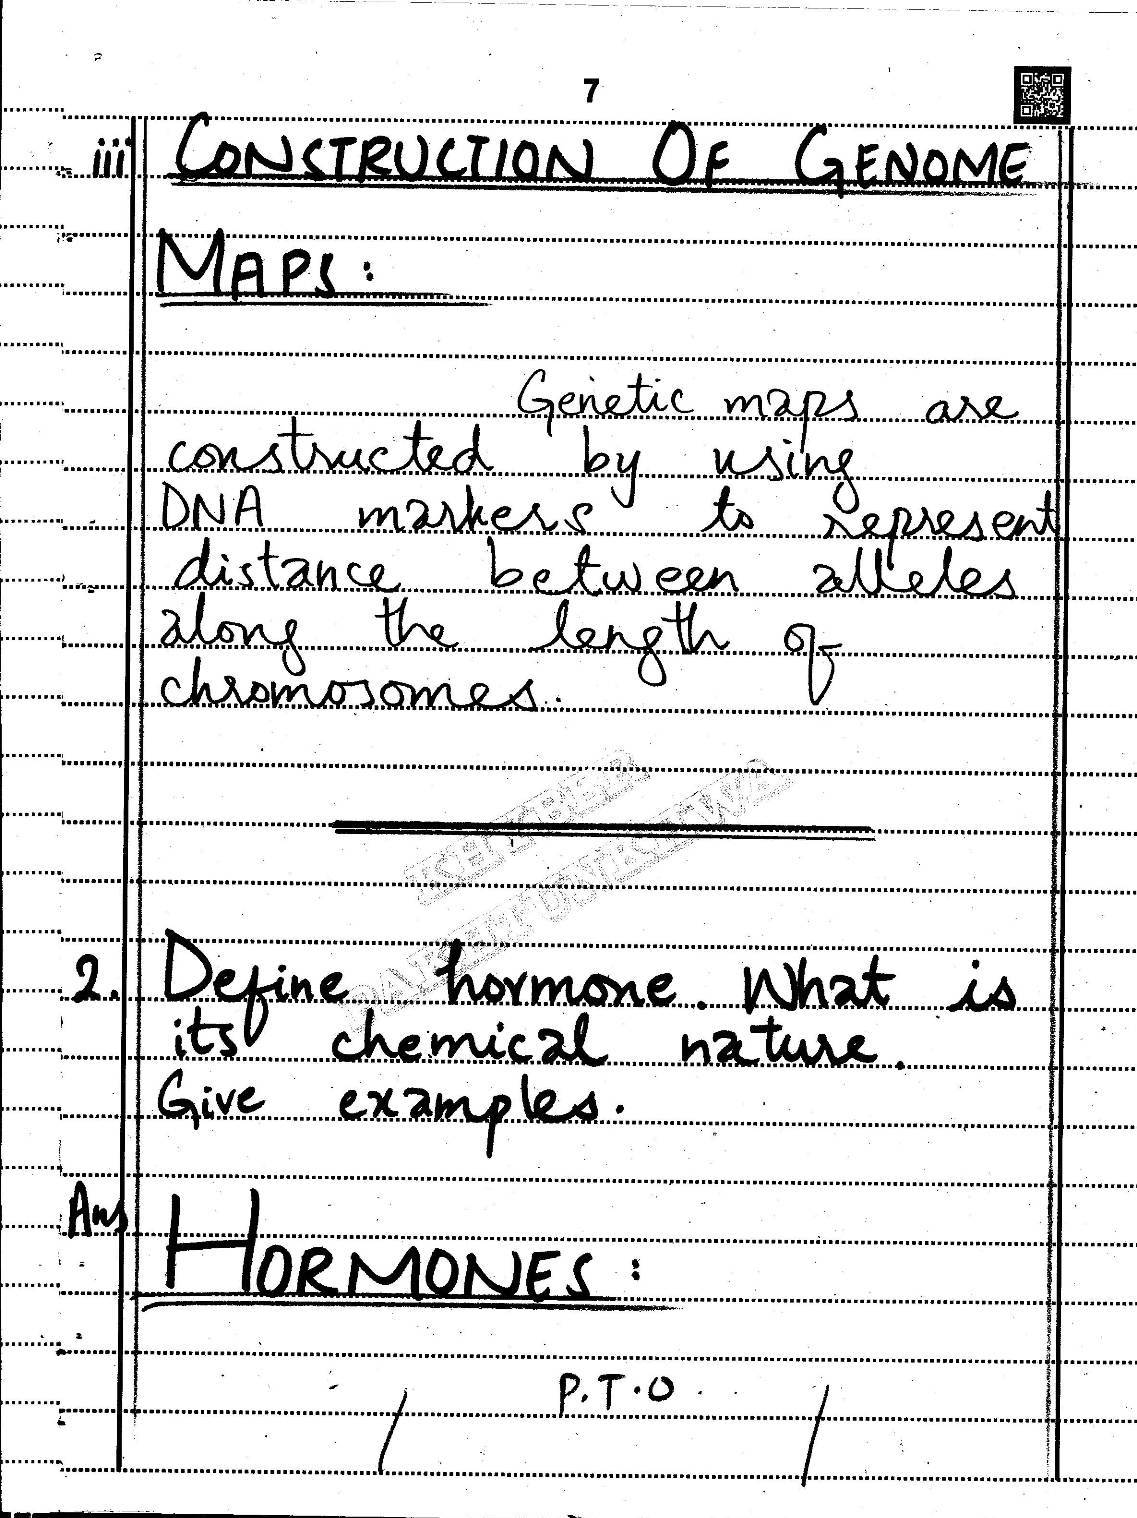 7
iii CONSTRUCTION OF GENOME
MAPS:
Genetic maps are
constructed by using
DNA markers to represent
distance between alleles
along the length of
chromosomes.
KHYBER
PAKHTUNKHWA
2. Define hormone. What is
its chemical nature.
Give examples.
Ans HORMONES:
P.T.O